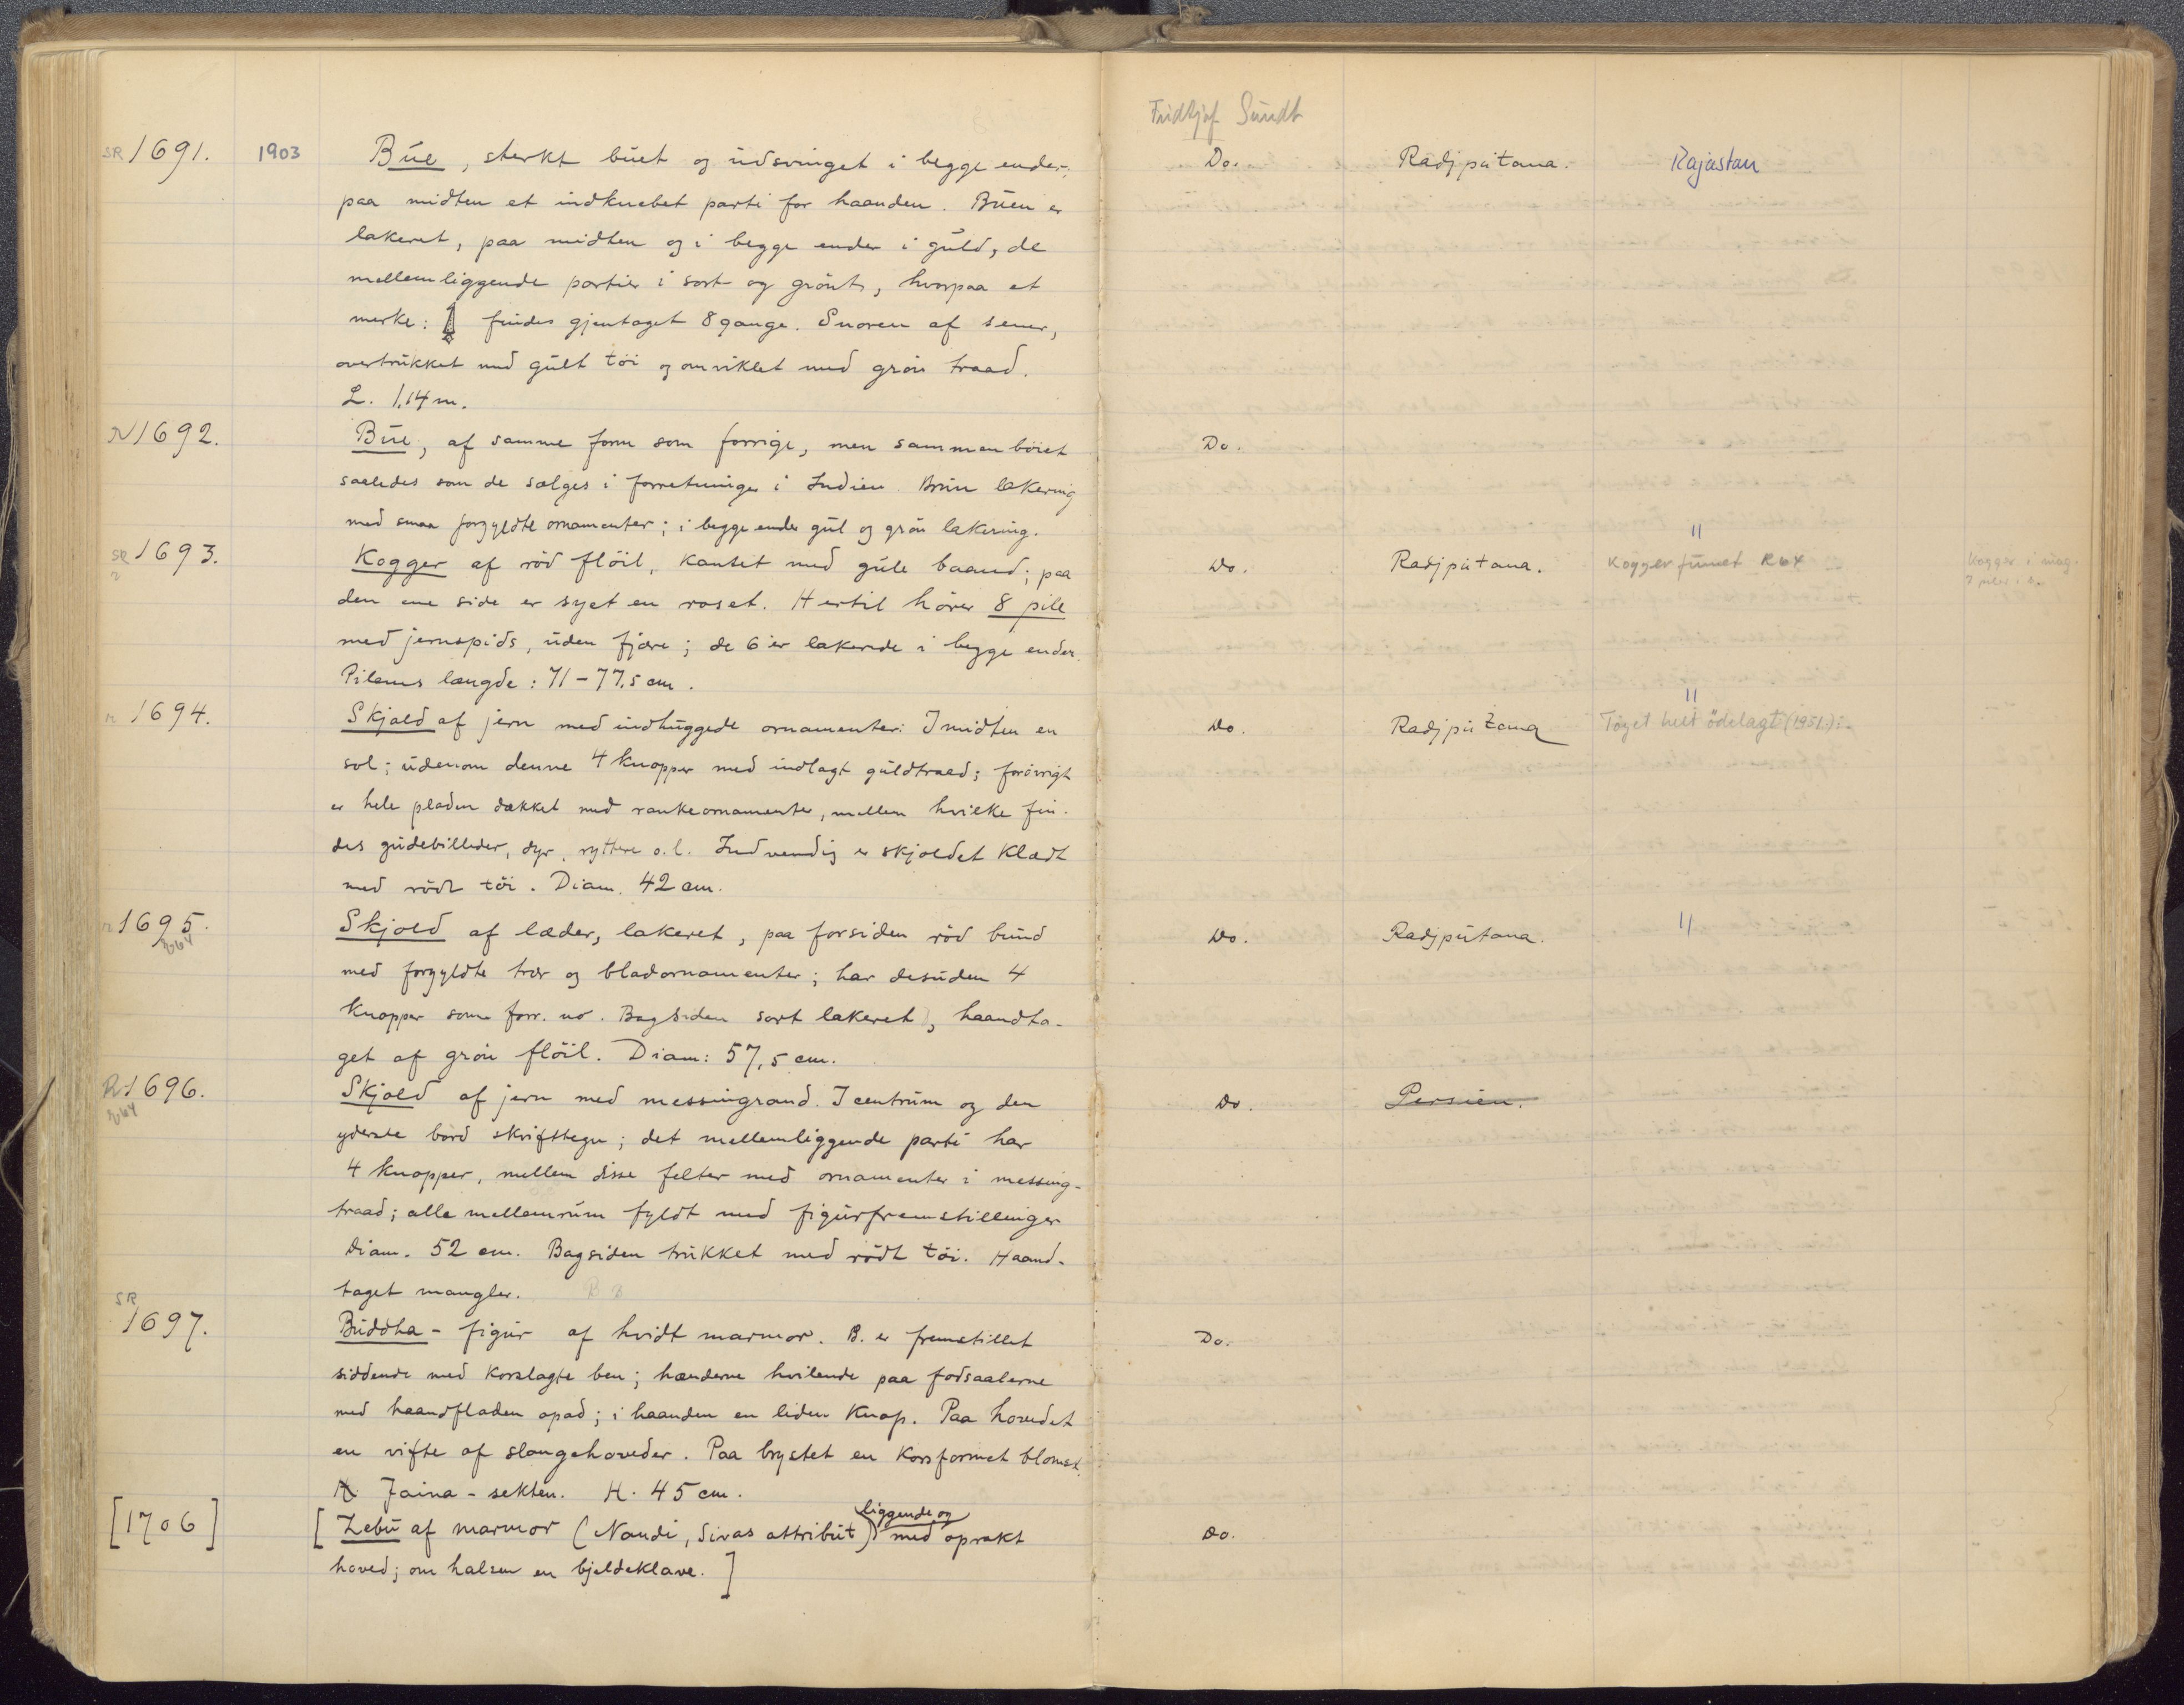 Fridtjof Sundt
SR 1691. 1903 Bue, sterkt buet og udsvinget i begge ender; Do. Radjputana. Rajastan
paa midten et indknebet parti for haanden. Buen er
lakeret, paa midten og i begge ender i guld, de
mellemliggende partier i sort og grønt, hvorpaa et
merke: findes gjentaget 8 gange. Snoren af sener,
overtrukket med gult töi og omviklet med grön traad.
L. 1,14 m.
N 1692. Bue, af samme form som forrige, men sammenböiet Do.
saaledes som de sælges i forretninger i Indien. Brun lakering
med smaa forgyldte ornamenter; i begge ender gul og grön lakering.
SR 1693. Kogger af röd flöil, kantet med gule baand; paa Do. Radjputana. " Kogger funnet R64 Kogger i mag.
den ene side er syet en roset. Hertil hörer 8 pile
med jernspids, uden fjære; de 6 er lakerede i begge ender.
Pilenes længde: 71-77,5 cm.
r 1694. Skjold af jern med indhuggede ornamenter: I midten en Do. Radjputana " Töyet helt ödelagt (1951)
sol; udenom denne 4 knopper med indlagt guldtraad; forövrigt
er hele pladen dækket med rankeornamenter, mellem hvilke fin-
des gudebilleder, dyr, ryttere o.l. Indvendig er skjoldet klædt
med rödt töi. Diam. 42 cm.
r 1695. Skjold af læder, lakeret, paa forsiden röd bund Do. Radjputana. "
R64
med forgyldte trær og bladornamenter; har desuden 4
knopper som forr. no. Bagsiden sort lakeret, haandta-
get af grön flöil. Diam: 57,5 cm.
R 1696. Skjold af jern med messingrand. I centrum og den Do. Persien.
R64
yderste bord skrifttegn; det mellemliggende parti har
4 knopper, mellem disse felter med ornamenter i messing-
traad; alle mellemrum fyldt med figurfremstillinger
Diam. 52 cm. Bagsiden trukket med rödt töi. Haand-
taget mangler.
SR
1697. Buddha-figur af hvidt marmor. B. er fremstillet Do.
siddende med korslagte ben; hænderne hvilende paa fodsaalerne
med haandfladen opad; i haanden en liden knop. Paa hovedet
en vifte af slangehoveder. Paa brystet en korsformet blomst.
Jaina-sekten. H. 45 cm.
[1706] [Zebu af marmor (Nandi, Sivas attribut) liggende og med oprakt Do.
hoved; om halsen en bjeldeklave.]